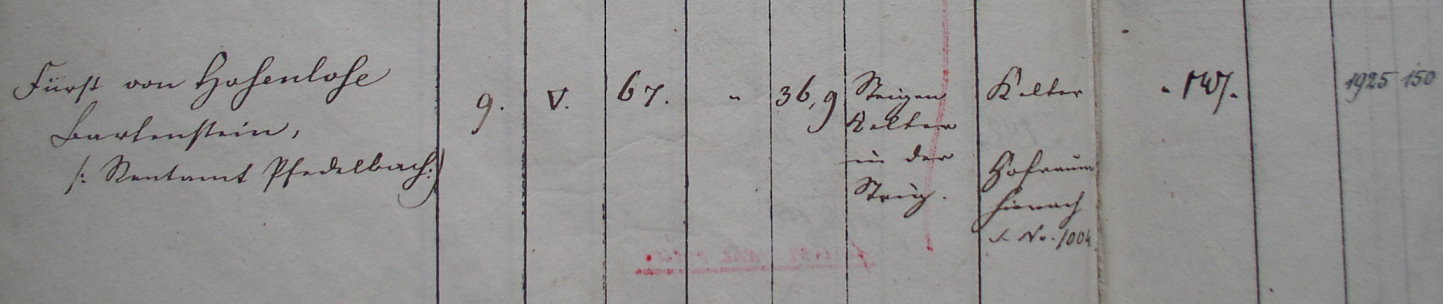 Fürst von Hohenlohe
Bartenstein,
/: Rentamt Pfedelbach :/
9.
V.
67.
"
36,9
Steigen
Kelter
in der
Steig.
Kelter
Hofraum
hienach
s. No. 1004.
1925 150